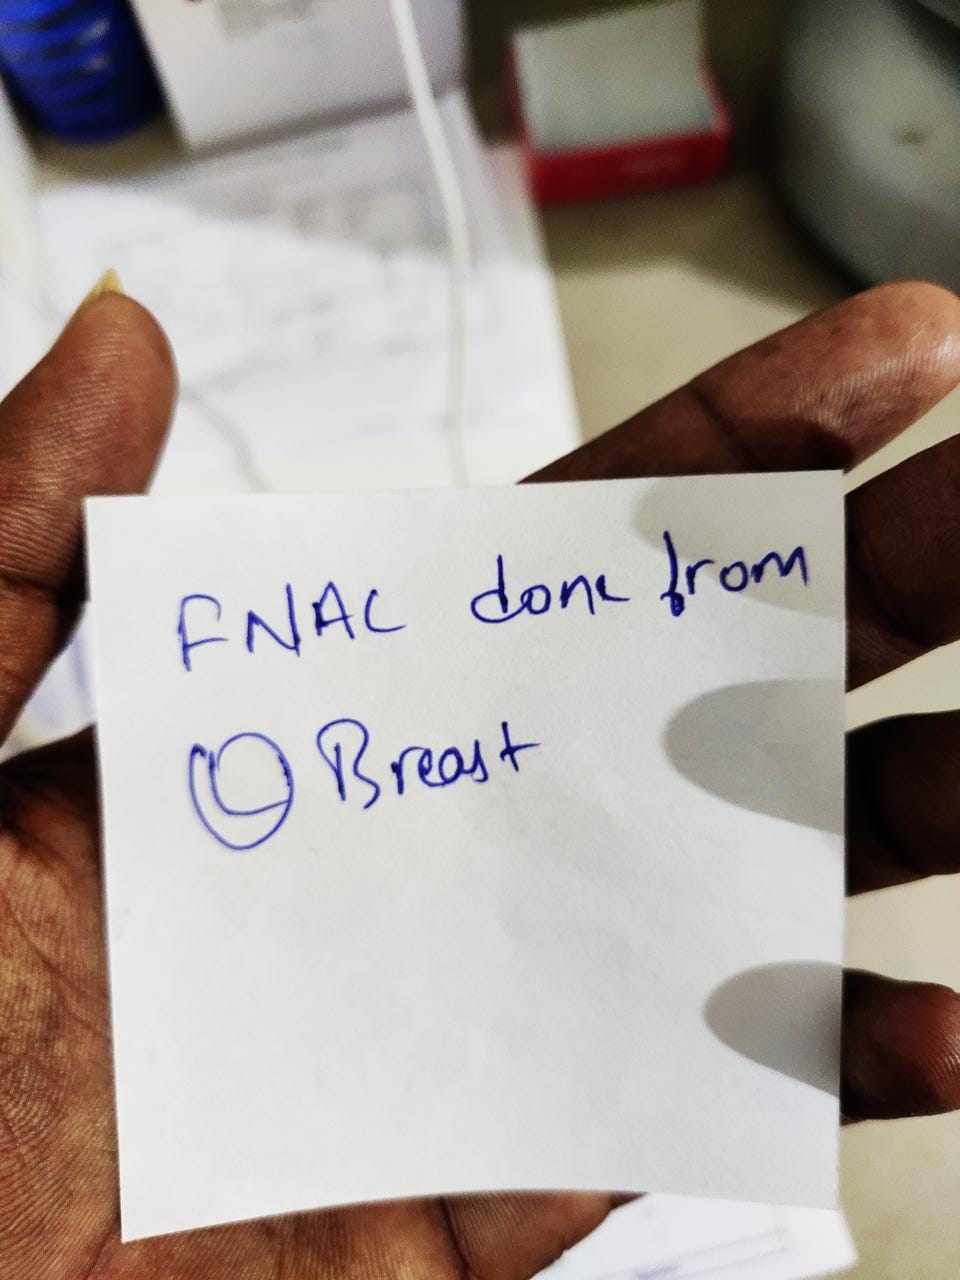 FNAC done from
Ⓛ Breast